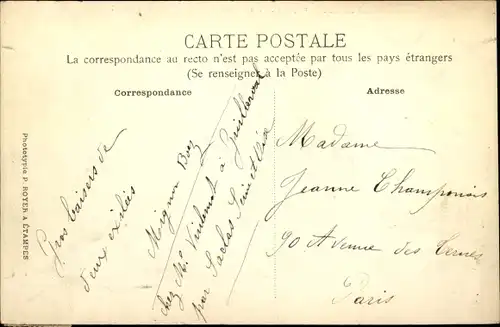 CARTE POSTALE
La correspondance au recto n'est pas acceptée par tous les pays étrangers
(Se renseigner à la Poste)
Correspondance
Adresse
Phototypie P. ROYER à ÉTAMPES
Gros baisers de
deux exilés
Mignon Buy
chez Mr à Guillerval
par Saclas Seine et Oise
Madame
Jeanne Champenois
90 Avenue des Ternes
Paris